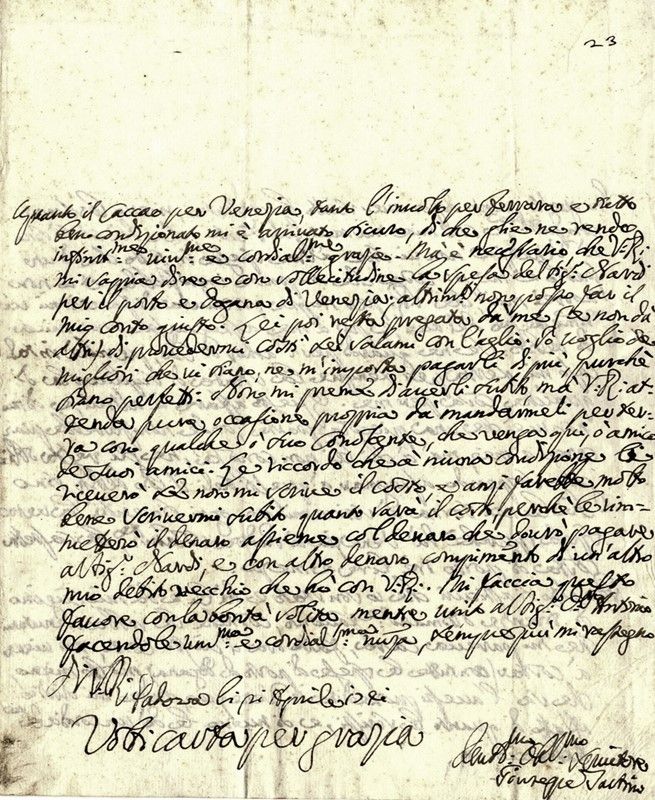 23
Quanto il Caccao per Venezia, tanto l'involto per Ferrara e tutto
ben condizionato mi è arrivato sicuro, di che glie ne rendo
infinit.me um.me e cordial.me grazie. Mà è necessario che V: R:
mi sappia dire e con sollecitudine la spesa del Sig: Nardi
per il porto e Dogana di Venezia: altrim.ti non posso far il
mio conto giusto. Lei poi resta pregata da me
di provedermi costì sei salami con l'aglio. Io voglio de
migliori che vi siano, nè m'importa pagarli di più, purchè
siano perfetti. Non mi preme d'averli subito, mà V: R: at-
tenda pure occasione propria da mandarmeli per ter-
ra con qualche suo Conoscente, che venga qui, ò amico
de suoi amici. Le riccordo che à niuna condizione li
riceverò se non mi scrive il costo, e anzi farebbe molto
bene scrivermi subito quanto sarà il costo perchè le rim-
metterò il denaro assieme col denaro che dourò pagare
al Sig: Nardi, e con altro denaro, compimento di un'altro
mio debito vecchio che hò con V: R: Mi faccia questo
favore con la bontà solita, mentre unito al Sig: Antonio
facendole um.ma e cordial.ma riu.za, sempre più mi rassegno
Di V: R:
Padova li Aprile
V'obicauta per grazia
Deuot.mo Obl.mo Seruitore
Giuseppe Tartini